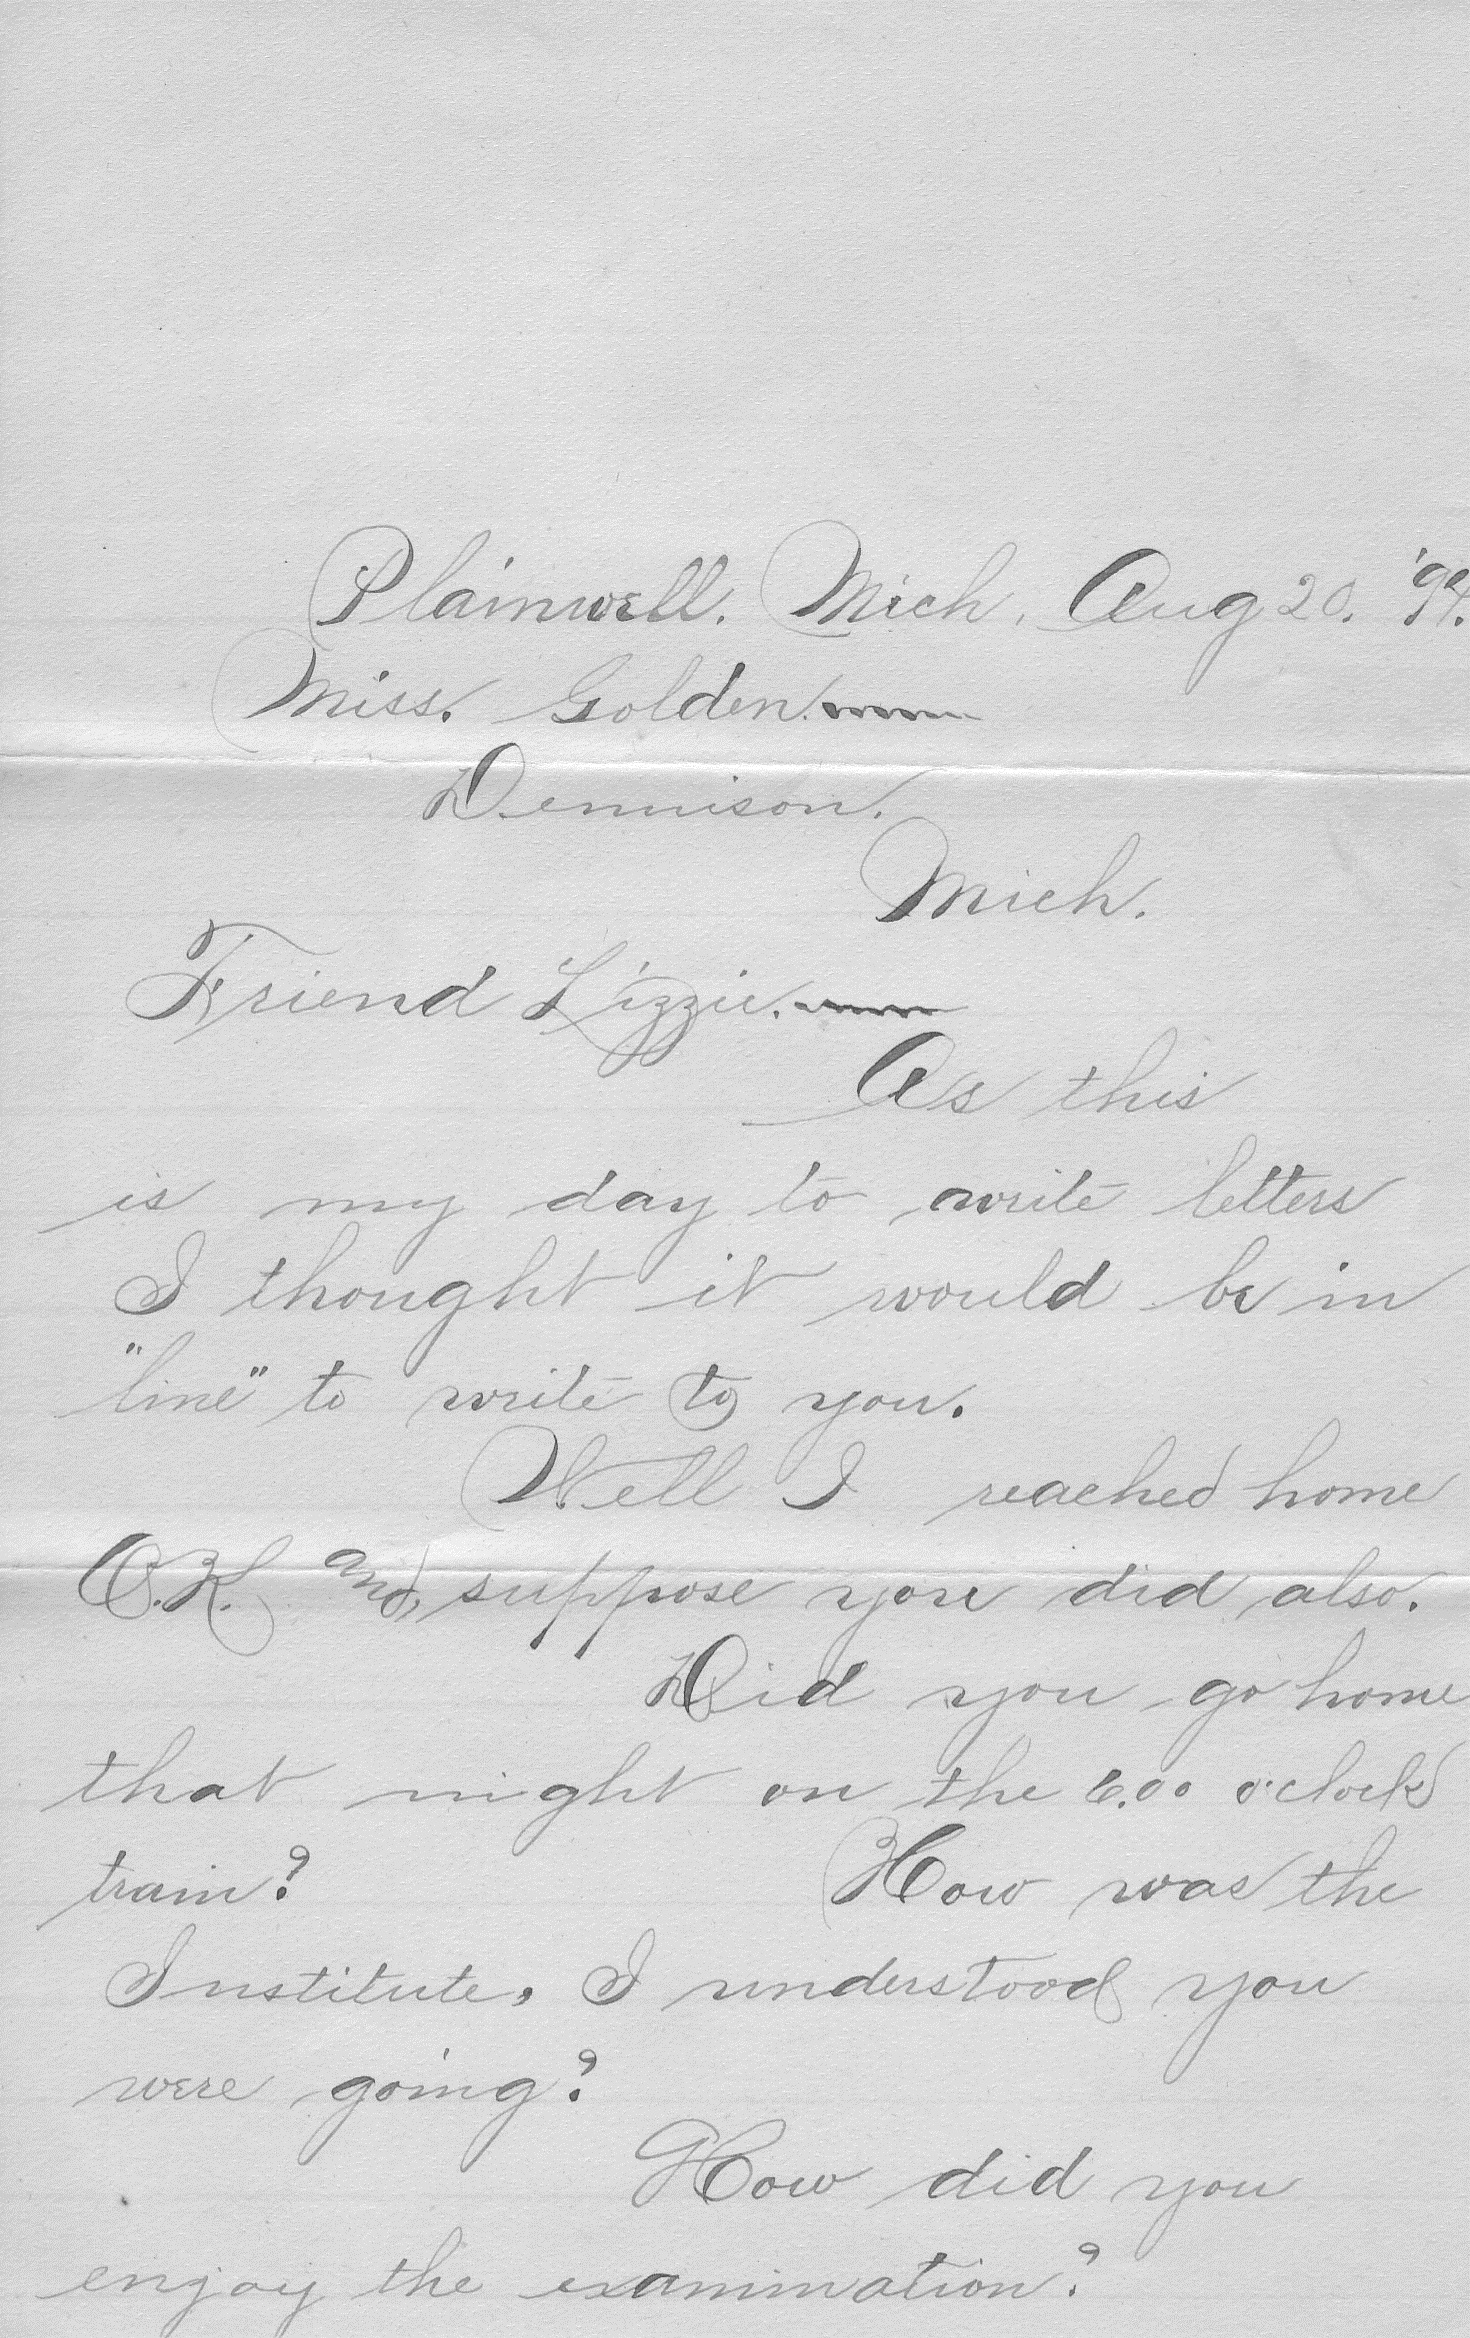 Plainwell. Mich. Aug 20. '94.
Miss. Golden.
Dennison.
Mich.
Friend Lizzie.
As this
is my day to write letters
I thought it would be in
"line" to write to you.
Well I reached home
O.K. and suppose you did also.
Did you go home
that night on the 6.00 o'clock
train? How was the
Institute, I understood you
were going?
How did you
enjoy the examination?